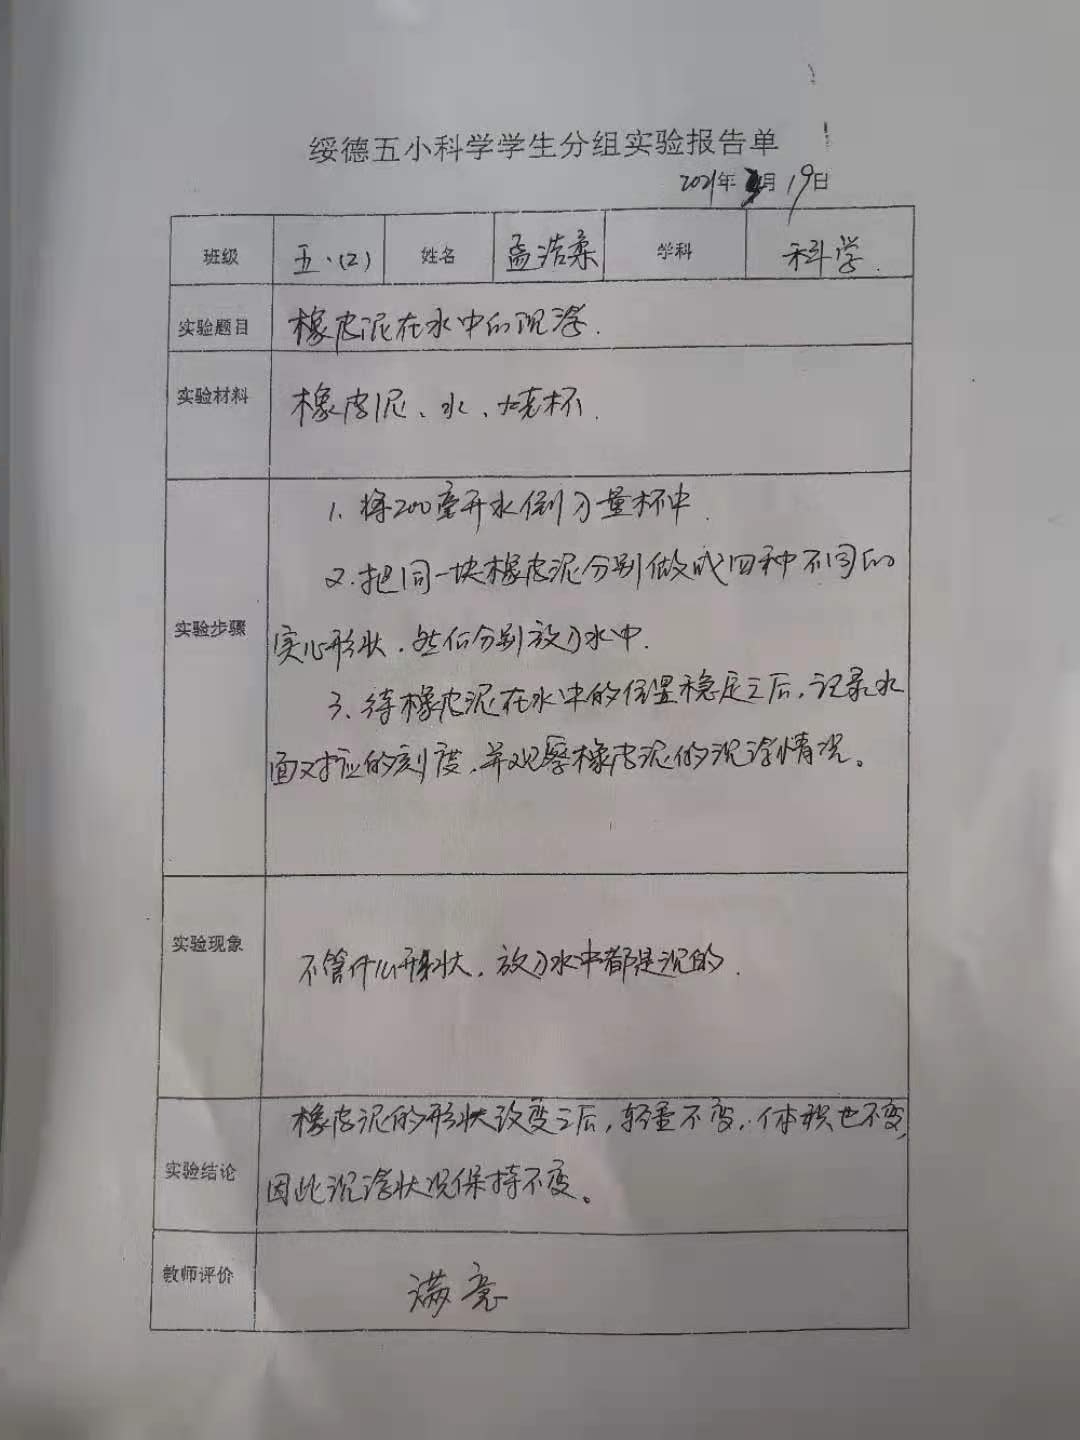 绥德五小科学学生分组实验报告单
2021年 月19日
班级 五.(2) 姓名 孟浩柔 学科 科学.
实验题目 橡皮泥在水中的沉浮.
实验材料 橡皮泥、水、烧杯.
1、将200毫升水倒入量杯中.
2.把同一块橡皮泥分别做成四种不同的
实验步骤
实心形状.然后分别放入水中.
3、待橡皮泥在水中的位置稳定之后,记录水
面对应的刻度.并观察橡皮泥的沉浮情况。
实验现象 不管什么形状,放入水中都是沉的.
橡皮泥的形状改变之后,轻重不变,体积也不变,
实验结论
因此沉浮状况保持不变。
教师评价 满意